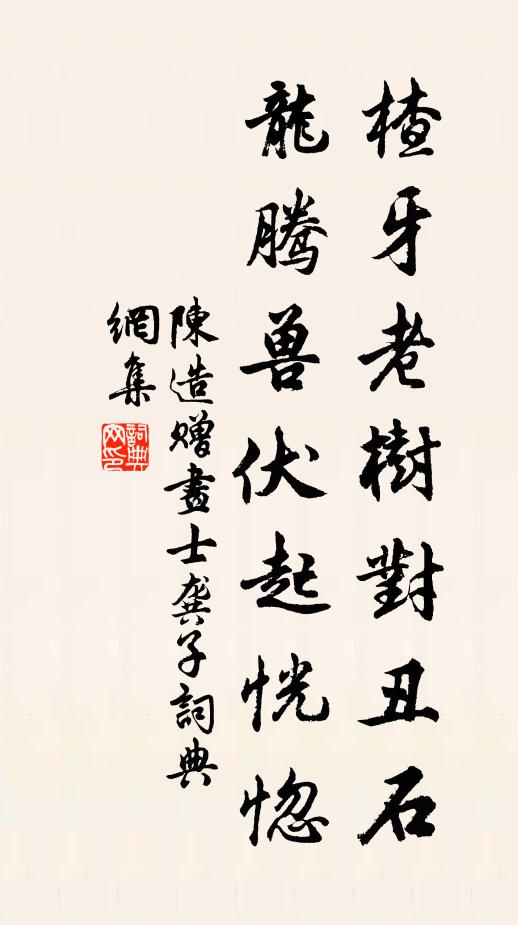 楂牙老樹對丑石
龍騰兽伏起恍惚
陳造赠畫士龚子詞典
網集
詞典網印